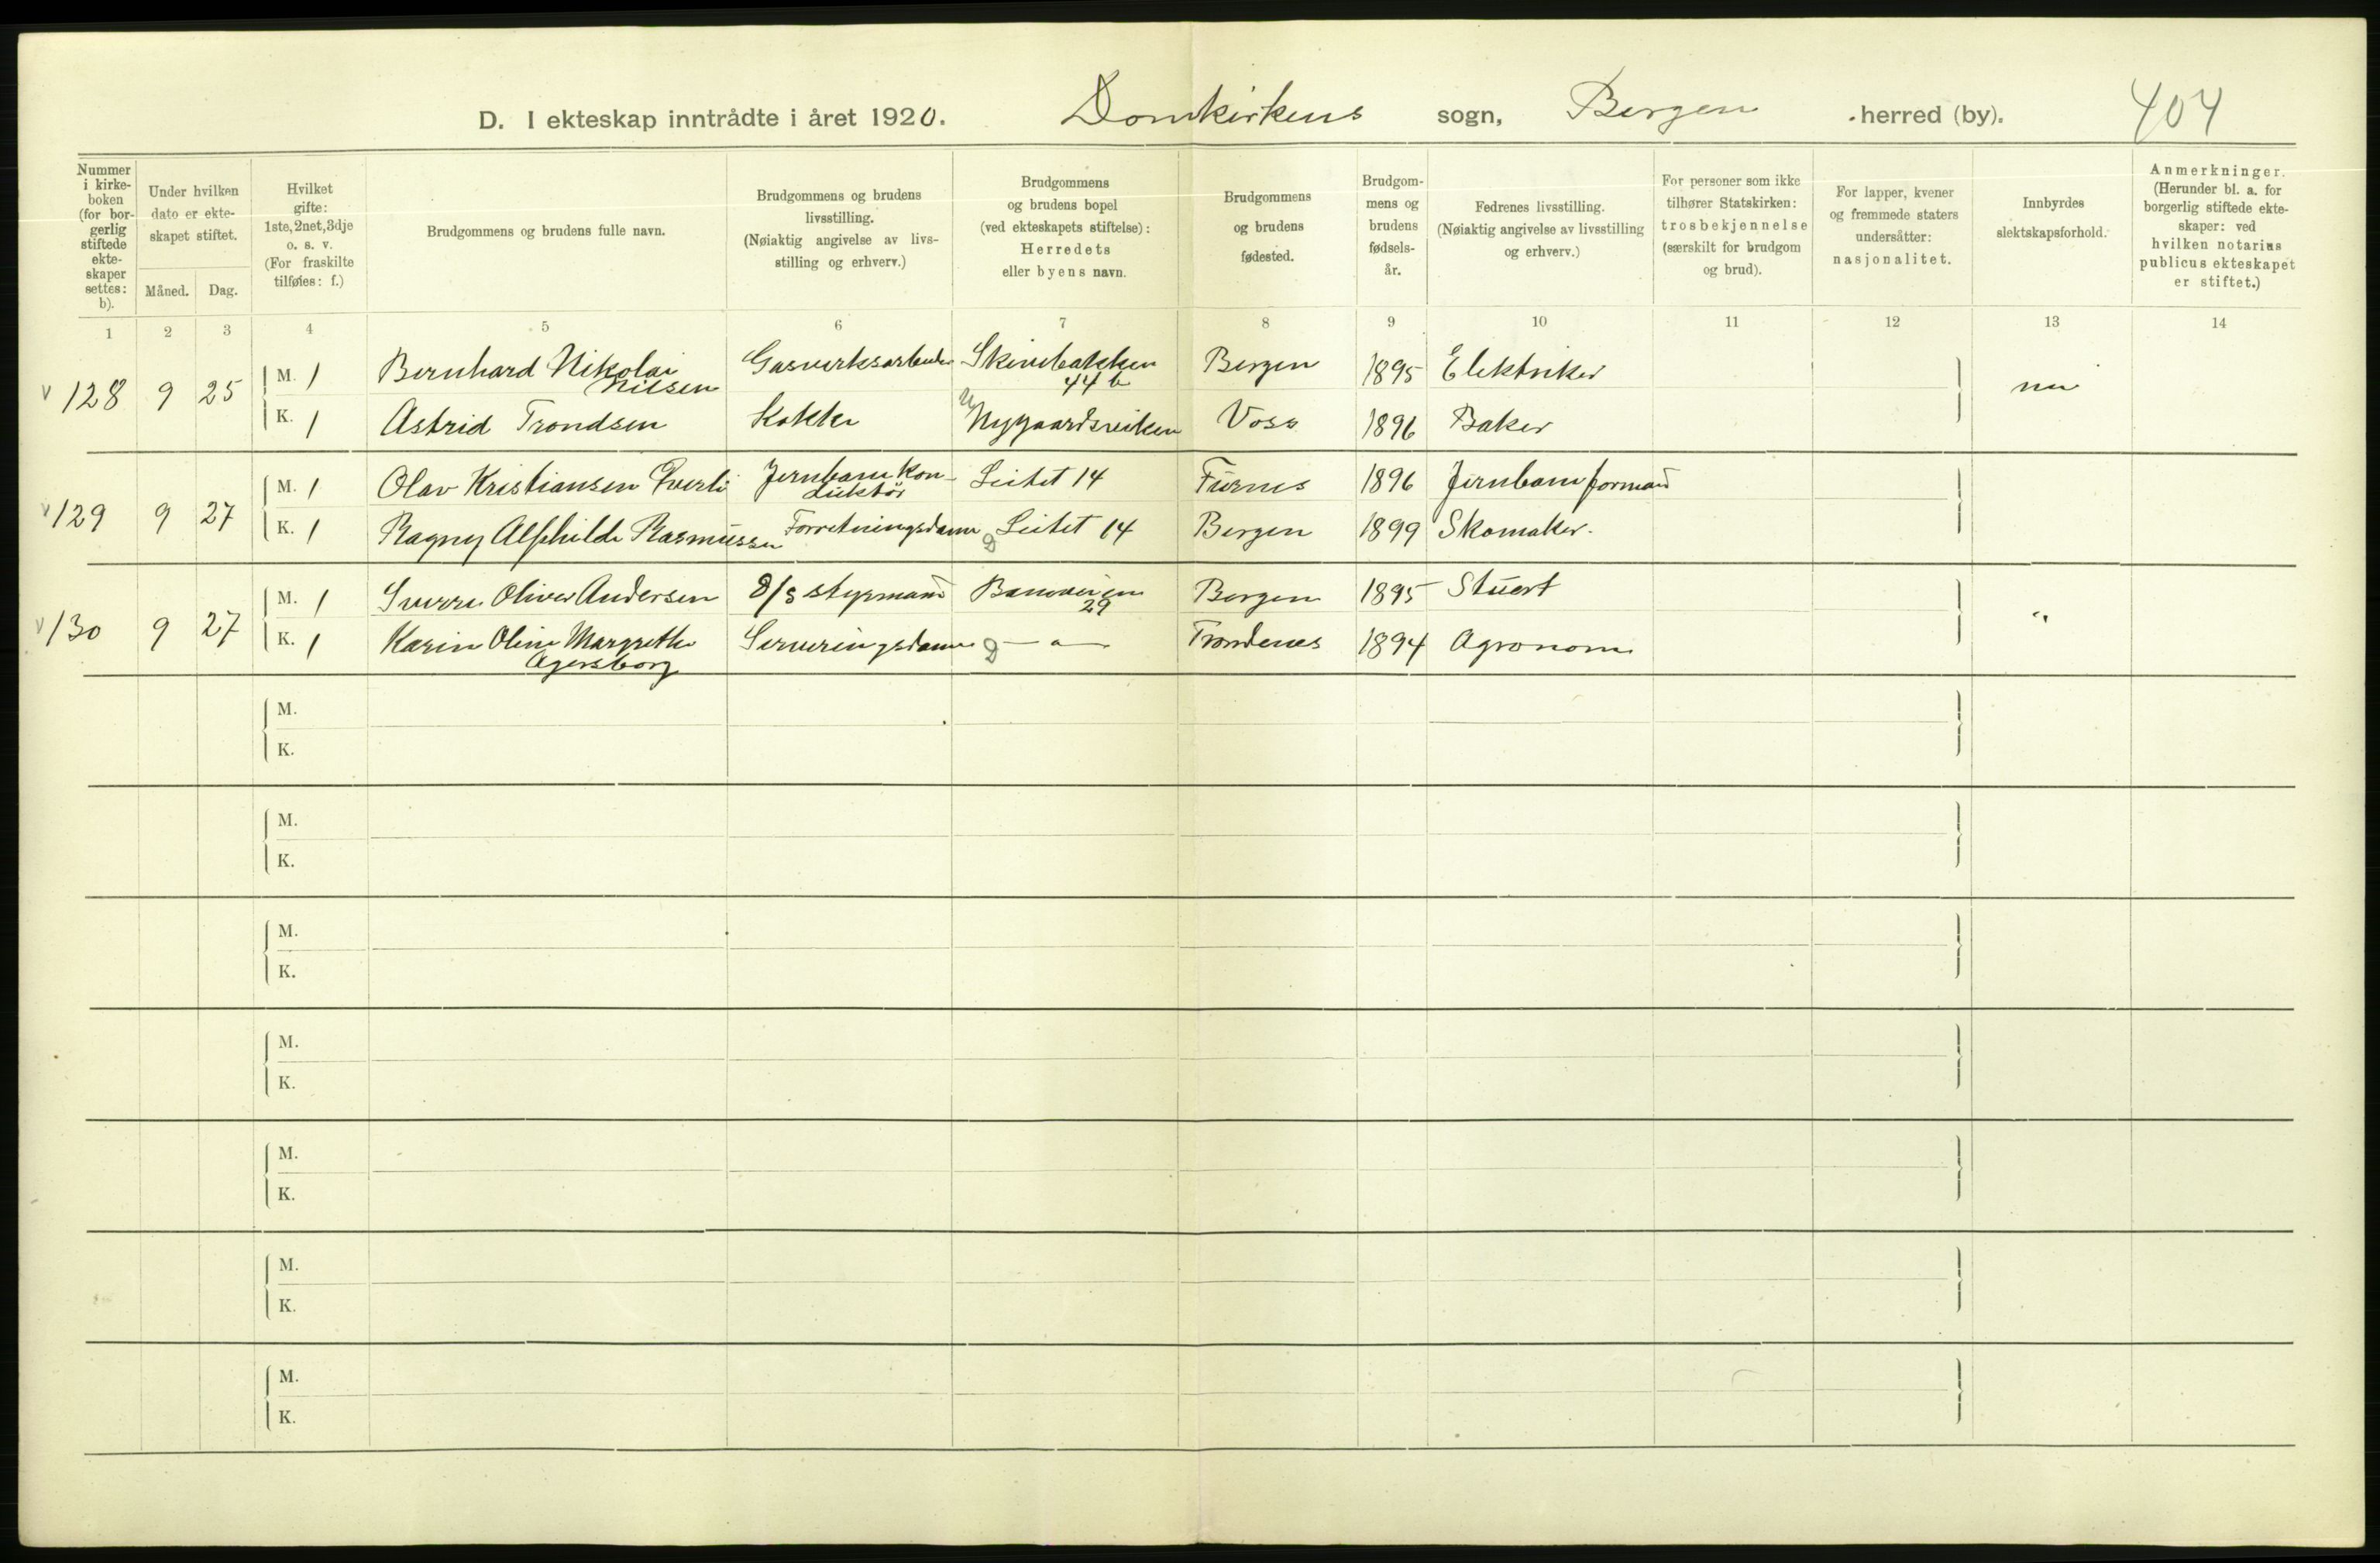 D. I ekteskap inntrådte i året 1920. Domkirkens sogn, Bergen herred (by). 404
Nummer i kirke- boken (for bor- gerlig stiftede ekte- skaper settes: b).
Under hvilken dato er ekte- skapet stiftet.
Måned. Dag.
Hvilket gifte: 1ste, 2net, 3dje o. s. v. (For fraskilte tilføies: f.)
Brudgommens og brudens fulle navn.
Brudgommens og brudens livsstilling. (Nøiaktig angivelse av livs- stilling og erhverv.)
Brudgommens og brudens bopel (ved ekteskapets stiftelse): Herredets eller byens navn.
Brudgommens og brudens fødested.
Brudgom- mens og brudens fødsels- år.
Fedrenes livsstilling. (Nøiaktig angivelse av livsstilling og erhverv.)
For personer som ikke tilhører Statskirken: trosbekjennelse (særskilt for brudgom og brud).
For lapper, kvener og fremmede staters undersåtter: nasjonalitet.
Innbyrdes slektskapsforhold.
Anmerkninger. (Herunder bl. a. for borgerlig stiftede ekte- skaper: ved hvilken notarius publicus ekteskapet er stiftet.)
1 2 3 4 5 6 7 8 9 10 11 12 13 14
128 9 25 M. 1 Bernhard Nikolai Nilsen Gasverksarbeider Skivebakken 44 b Bergen 1895 Elektriker nei
K. 1 Astrid Trondsen Kokke Nygaardsveiken Voss 1896 Baker
129 9 27 M. 1 Olav Kristiansen Jernbanekon- duktør Leitet 14 Furnes 1896 Jernbaneformand
K. 1 Ragny Alfhilde Rasmussen Forretningsdame Leitet 14 Bergen 1899 Skomaker.
130 9 27 M. 1 Sverre Oliver Andersen D/S styrmand 29 Bergen 1895 Stuert "
K. 1 Karin Oline Margrethe Agersborg Serveringsdame — " — Trondenes 1894 Agronom
M.
K.
M.
K.
M.
K.
M.
K.
M.
K.
M.
K.
M.
K.